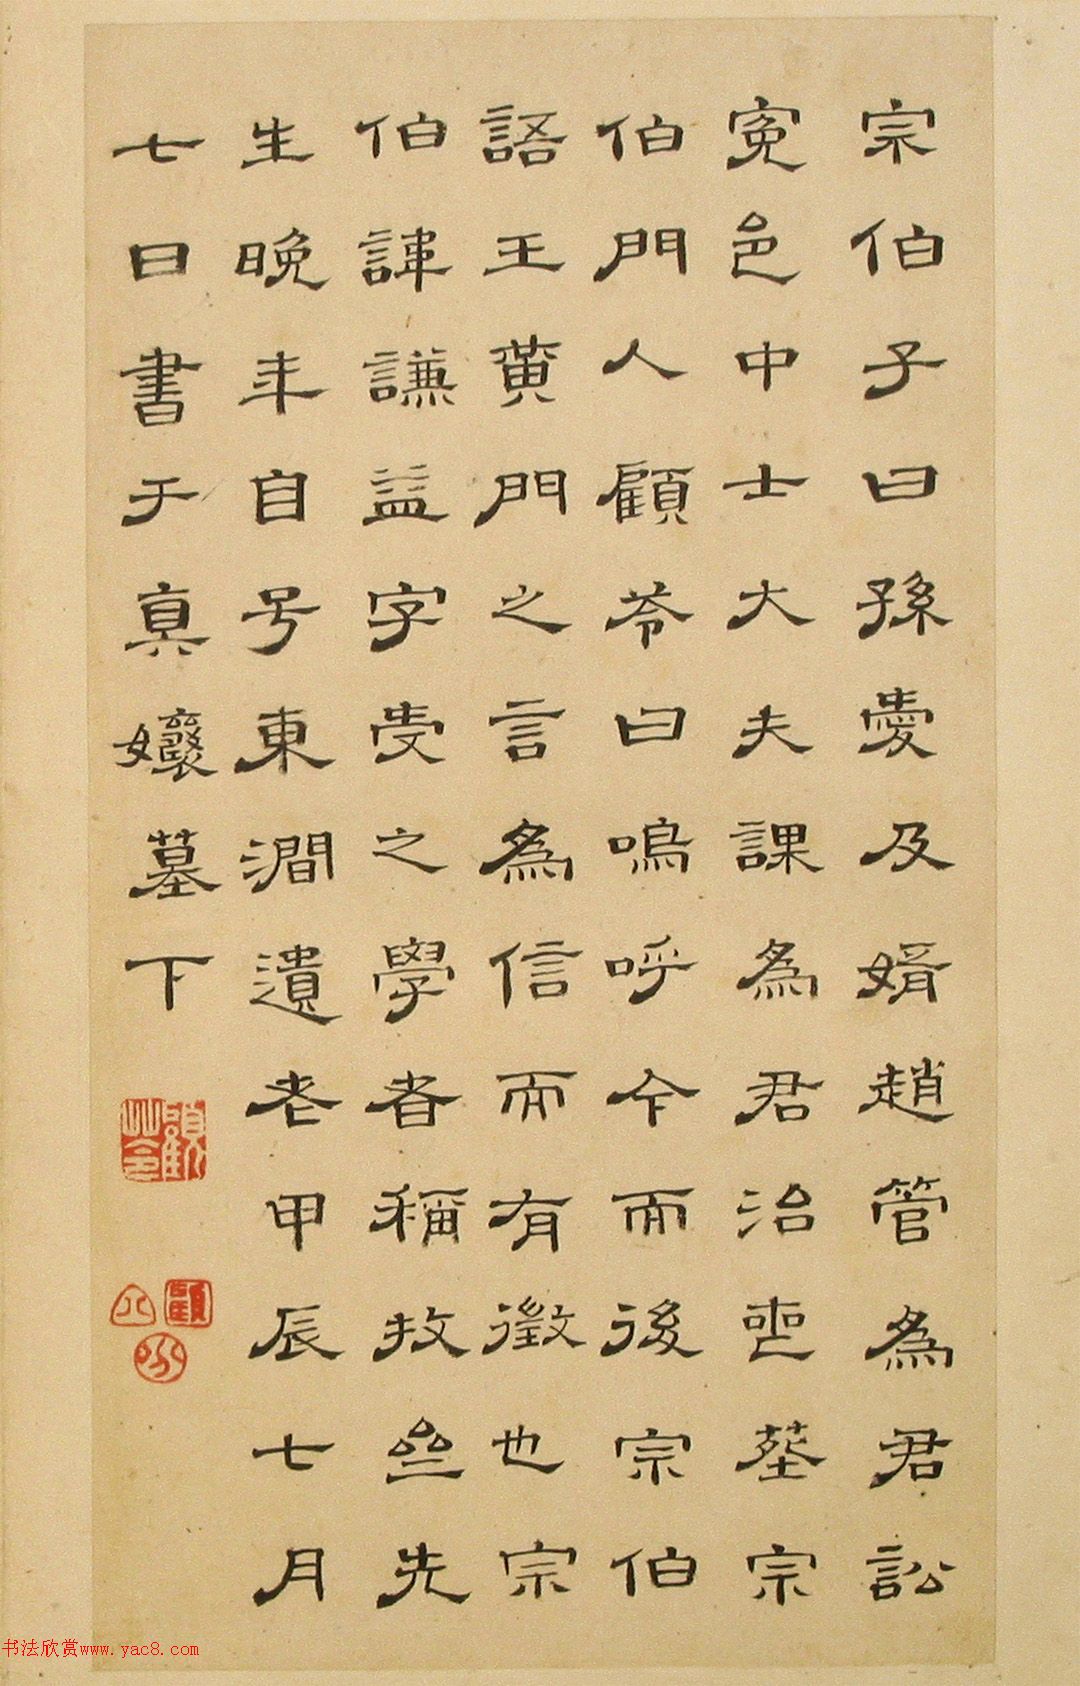 宗伯子曰孫愛及婿趙管為君訟
寃邑中士大夫課為君治喪塟宗
伯門人顧苓曰嗚呼今而後宗伯
語王黄門之言為信而有徵也宗
伯諱謙益字受之學者稱牧齋先
生晚年自号東澗遺老甲辰七月
七日書于真孃墓下
顧苓
顧
八分
书法欣赏www.yac8.com